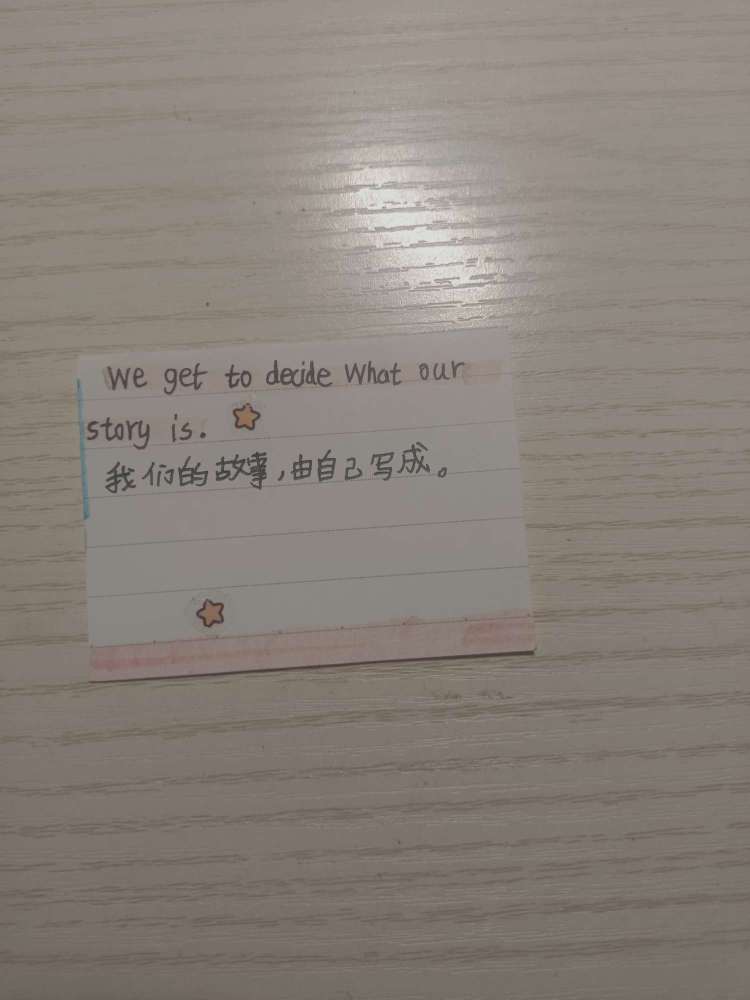 We get to decide What our
story is.
我们的故事,由自己写成。